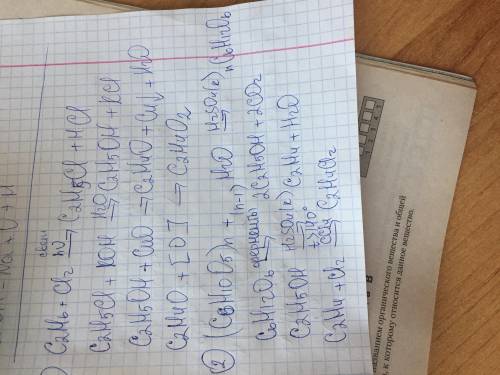 свет
1) C2H6 + Cl2 hν→ C2H5Cl + HCl
C2H5Cl + KOH H2O→ C2H5OH + KCl
C2H5OH + CuO → C2H4O + Cu↓ + H2O
C2H4O + [O] → C2H4O2
2) (C6H10O5)n + (n-1) H2O H2SO4(к)→ nC6H12O6
C6H12O6 ферменты→ 2C2H5OH + 2CO2
C2H5OH H2SO4(к)→ C2H4 + H2O
C2H4 + Cl2 CCl4→ C2H4Cl2
названием органического вещества и общей
, к которому относится данное вещество.